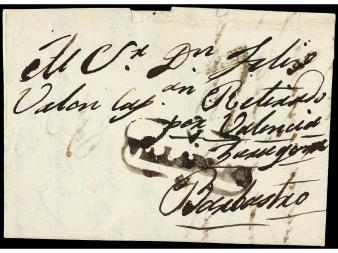 Al Sr. Dn Felis
Valon Cap.an Retirado
por Valencia
Zaragoza
Barbastro